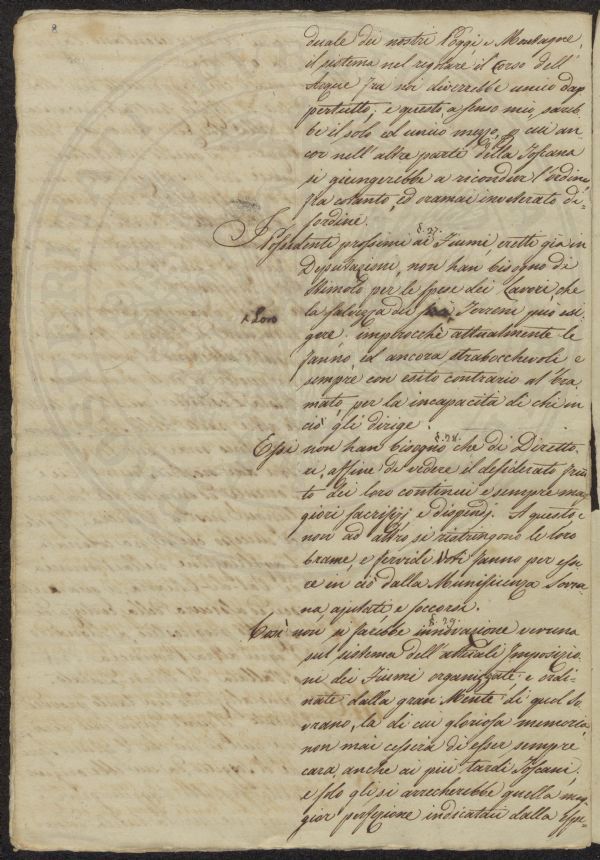 8
duale dei nostri Poggi e Montagne,
il sistema nel regolare il Corso dell'
Acque fra noi diverrebbe unico dap
pertutto: e questo, a senso mio, sareb-
be il solo ed unico mezzo, p cui an
cor nell'altre parti della Toscana
si giungerebbe a ricondur l'ordine
fra cotanto, ed oramai inveterato di-
sordine.
§. 27.
I Possidenti prossimi ai Fiumi eretti già in
Deputazioni, non han bisogno di
stimolo per le spese dei Lavori che
la salvezza dei Terreni può esi
x Loro
gere: imperocchè attualmente le
fanno, ed ancora strabocchevoli e
sempre con esito contrario al bra
mato, per la incapacità di chi in
ciò gli dirige.
§. 28.
Essi non han bisogno che di Diretto-
ri, affine di vedere il desiderato frut
to dei loro continui e sempre mag
giori sacrifizj e dispendj. A questo e
non ad altro si ristringono le loro
brame, e fervidi Voti fanno per esse
re in ciò dalla Munificenza Sovra-
na ajutati e soccorsi.
§. 29.
Così non si farebbe innovazione veruna
sul sistema dell'attuali Imposizio
ni dei Fiumi organizzate e ordi-
nate dalla gran Mente di quel So
vrano, la di cui gloriosa memoria
non mai cesserà di esser sempre
cara anche ai più tardi Toscani:
e solo gli si arrecherebbe quella mag
gior perfezione indicataci dalla Espe-